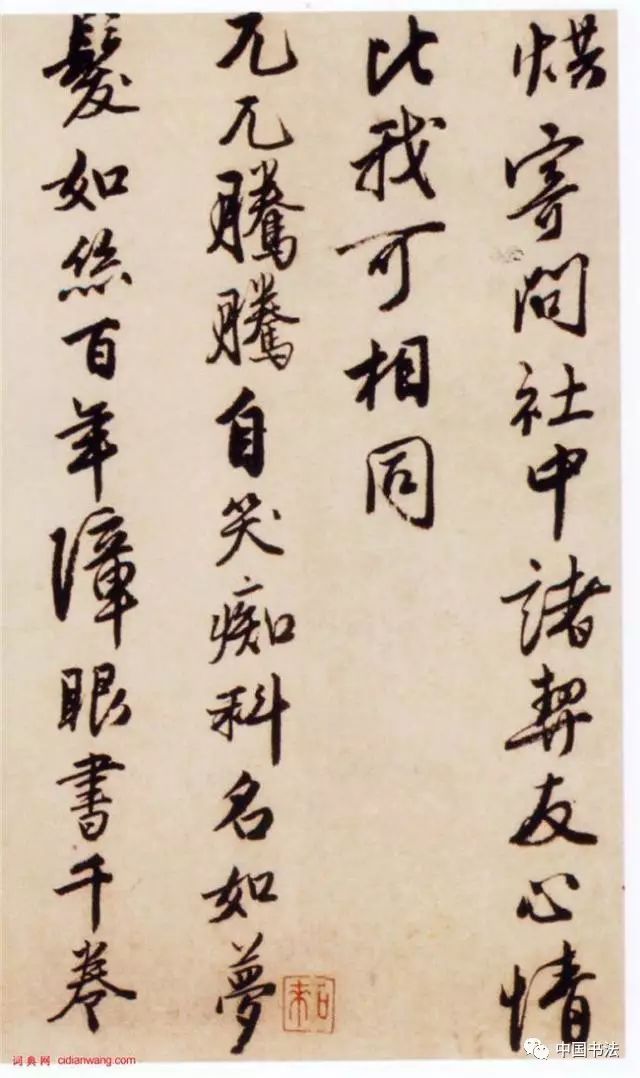 烘寄問社中諸契友心情
比我可相同
兀兀騰騰自笑痴科名如夢
髮如絲百年障眼書千卷
词典网 cidianwang.com
中国书法